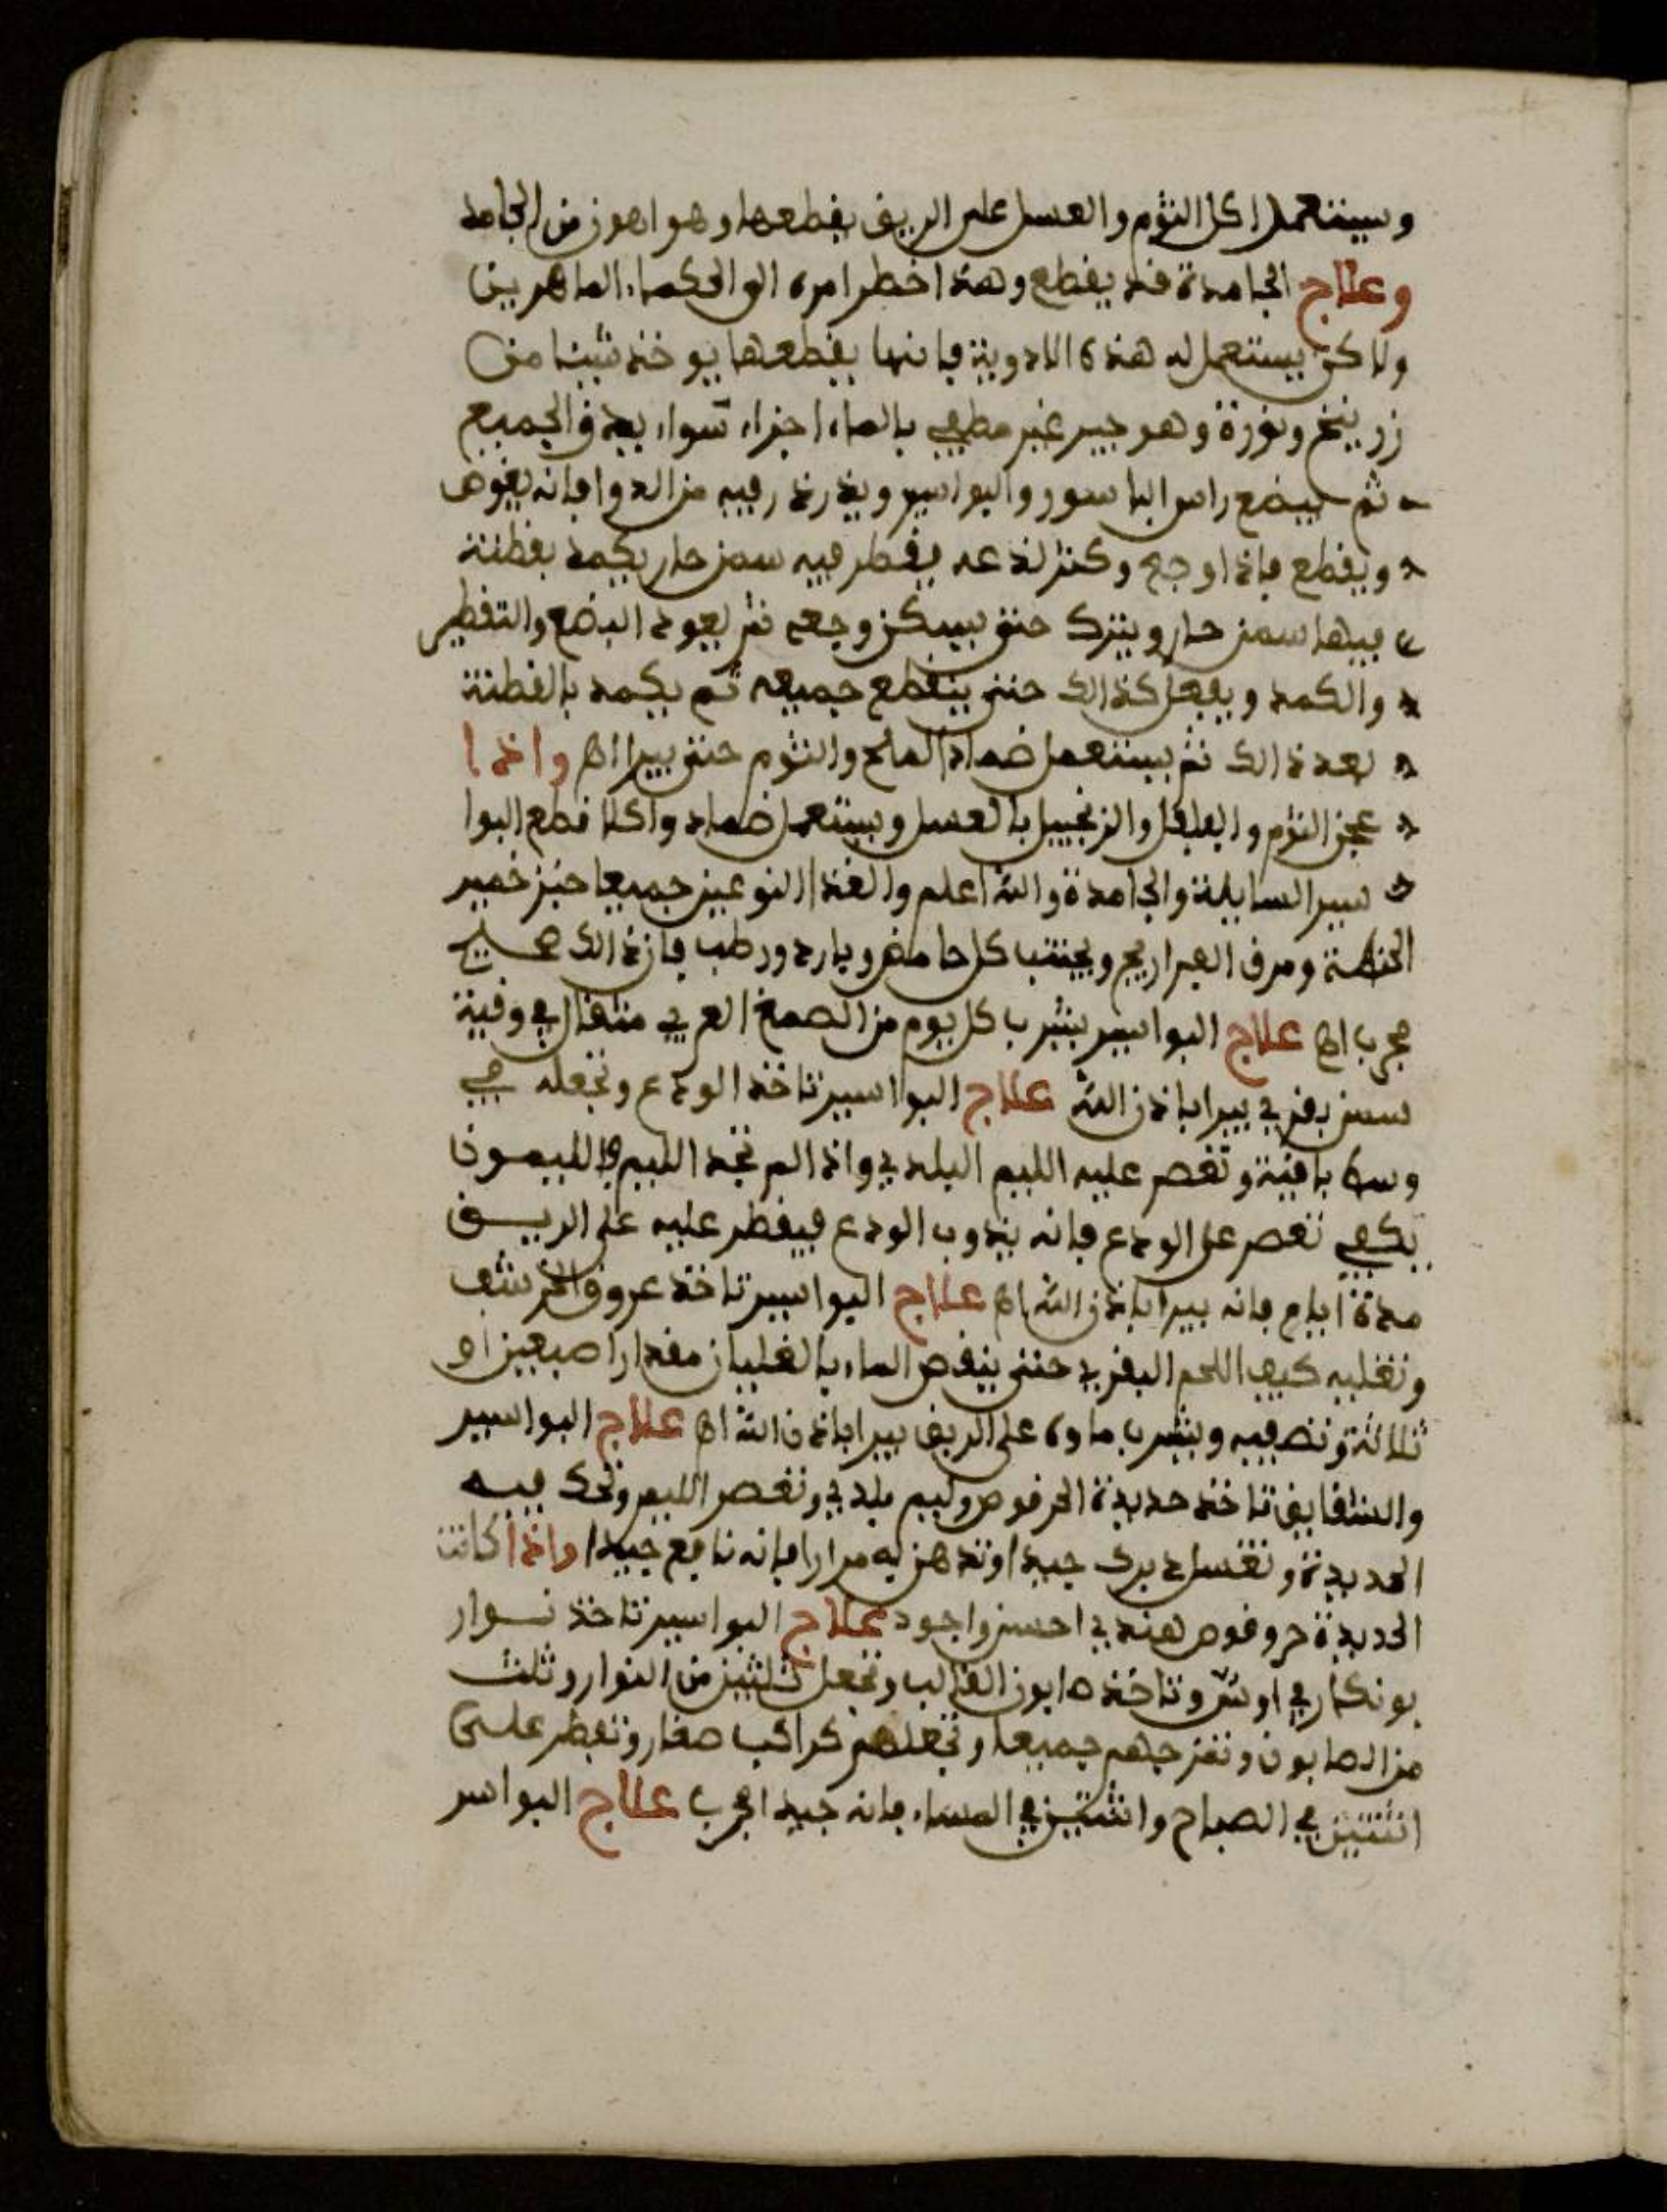 ويستعمل اكل الثوم والعسل على الريق يقطعها وهو اهون من الجامد
وعلاج الجامدة قد يقطع وهذا خطر امره الى الحكماء الماهرين
ولاكن يستعمل له هذه الادوية فانها يقطعها يوخذ شيئا من
زرنيخ ونورة وهو جير غير مطفي بالماء اجزاء سواء يدق الجميع
ثم يبضع راس الباسور والبواسير ويذرذر فيه من الدوا فانه يغوص
ويقطع فاذا وجع وكثر لذعه يقطر فيه سمن حار يكمد بقطنة
فيها سمن حار ويترك حتى يسكن وجعه ثم يعود البضع والتقطير
والكمد ويفعل كذالك حتى ينقطع جميعه ثم يكمد بالقطنة
بعد ذالك ثم يستعمل ضماد الملح والثوم حتى يبرا اه واذا
عجن الثوم والفلفل والزنجبيل بالعسل ويستعمل ضماد واكلا قطع البوا
سير السايلة والجامدة والله اعلم والغذا النوعين جميعا خبز خمير
الحنطة ومرق الفراريج ويجتنب كل حامض وبارد ورطب فان ذالك صحيح
مجرب اه علاج البواسير يشرب كل يوم من الصمغ العربي مثقال في وقية
سمن بقري يبرا باذن الله علاج البواسير تاخذ الودع وتجعله في
وسط باقية وتعصر عليه الليم البلدي واذا لم تجد الليم فالليمون
يكفي تعصر على الودع فانه يذوب الودع فيفطر عليه على الريق
مدة ايام فانه يبرا باذن الله اه علاج البواسير تاخذ عروق الخرشف
وتغليه كيف اللحم البقري حتى ينقص الماء بالغليان مقدار اصبعين او
ثلاثة وتصفيه ويشرب ماوه على الريق يبرا باذن الله اه علاج البواسير
والشقايق تاخذ حديدة الحرقوص وليم بلدي وتعصر الليم وتحك فيه
الحديدة وتغسل دبرك جيدا وتدهن به مرارا فانه نافع جيدا واذا كانت
الحديدة حرقوص هندي احسن واجود علاج البواسير تاخذ نوار
بونكار في اوش وتاخذ صابون القالب وتجعل ثلثين من النوار وثلث
من الصابون وتمزجهم جميعا وتجعلهم كراكب صغار وتفطر على
اثنتين في الصباح واثنتين في المساء فانه جيد مجرب علاج البواسر